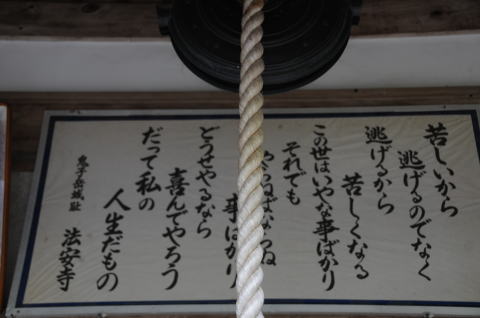 苦しいから
逃げるのでなく
逃げるから
苦しくなる
この世はいやな事ばかり
それでも
やらねばならぬ
事ばかり
どうせやるなら
喜んでやろう
だって私の
人生だもの
鬼子嶽城址 法安寺